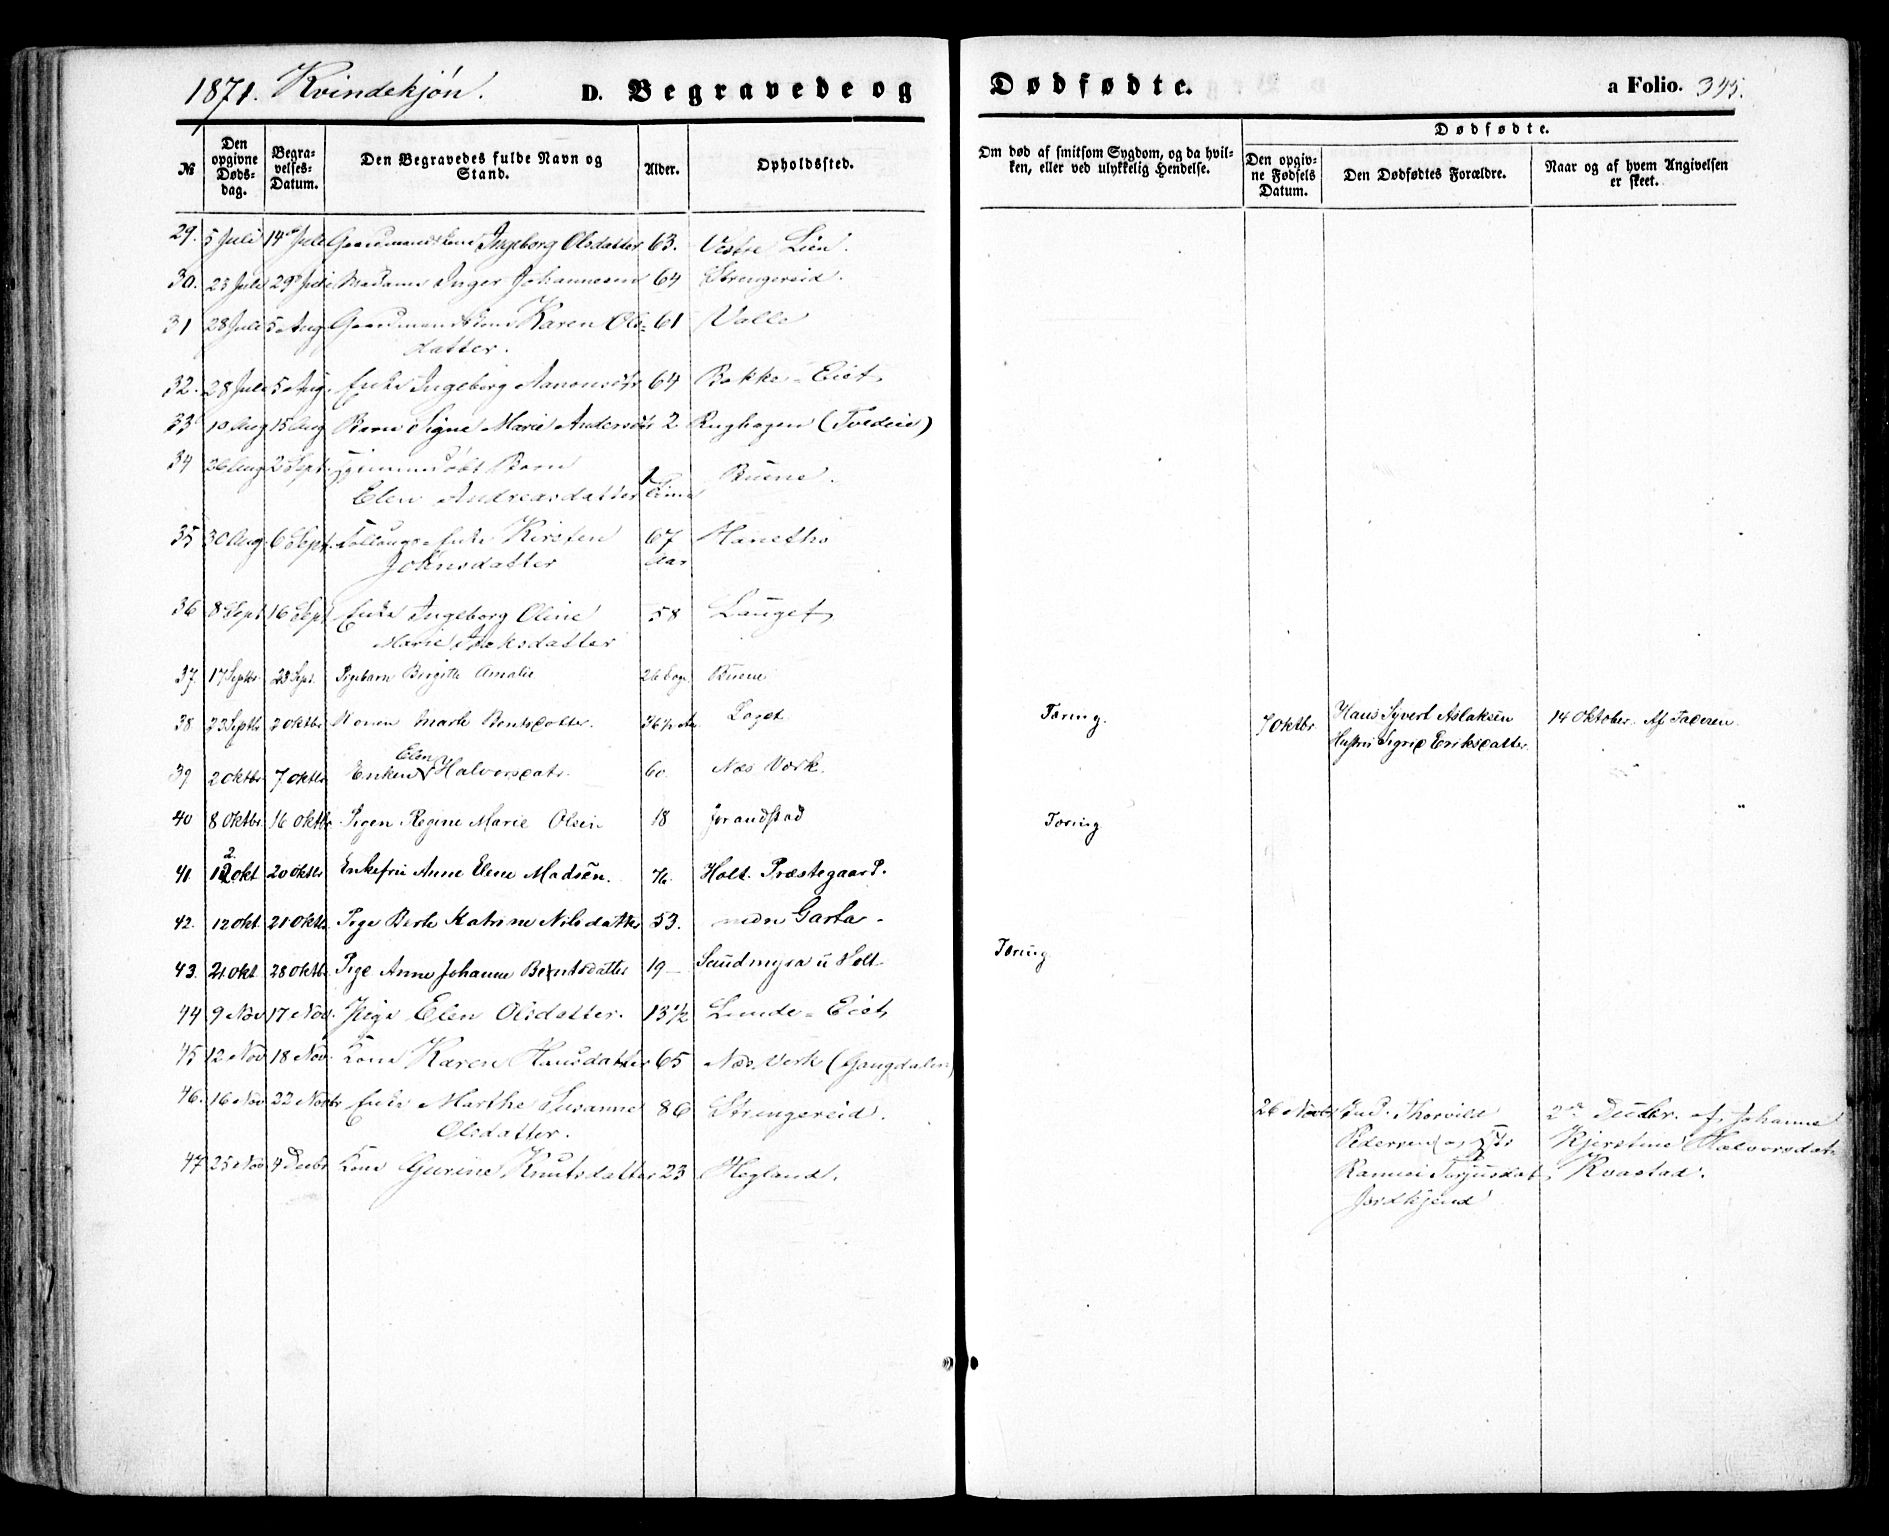 1871. Kvindekjøn. D. Begravede og Dødfødte. a Folio. 345.
№ Den opgivne Dødsdag. Begravelses-Datum. Den Begravedes fulde Navn og Stand. Alder. Opholdssted. Om død af smitsom Sygdom, og da hvilken, eller ved ulykkelig Hendelse. Dødfødte. Den opgivne Fødsels Datum. Den Dødfødtes Forældre. Naar og af hvem Angivelsen er skeet.
29. 5 Juli 14 Juli Gaardmandskone Ingeborg Olsdatter 63. Vestre Lien.
30. 23 Juli 29 Juli Madame Inger Johannesen 64 Strengereid.
31 28 Juli 5 Aug. Gaardmandskone Karen Ols-
datter. 61 Valle
32. 28 Juli 5 Aug. Enke Ingeborg Aanonsdtr 64 Bakke-Eiet
33 10 Aug 15 Aug Barn Signe Marie Andersdtr 2 Rughagen (Tvedeie)
34 30 Aug 2 Sept. Hjemmedøbt Barn
Elen Andreasdatter 1 Time Buene.
35 30 Aug. 6 Sept. Enke Kirsten
Johnsdatter 67 Aar Hanetho
36 8 Sept 16 Sept Enke Ingeborg Oline
Marie Isaksdatter 58 Lauget
37 17 Septbr 23 Sept. Pigebarn Birgitte Amalie 26 Dage Buene
38 23 Septbr 2 Oktbr Konen Marte Bentsdatter. 36½ Aar Laget Tæring. 7 Oktbr Hans Syvert Aslaksen 14 Oktober. Af Faderen.
Hustru Sigrid Eriksdatter
39 2 Oktbr 7 Oktbr Enken Elen Halversdatr. 60. Næs Værk.
40 8 Oktbr 16 Oktbr Pigen Regine Marie Olsen 18 Jorandstad Tæring
41. 12 Okt. 20 Oktbr Enkefru Anne Elene Madsen. 76. Holt. Præstegaard.
42. 12 Okt. 21 Oktbr Pige Berte Katrine Nilsdatter 53. nedn Garta.
43. 21 Okt 28 Oktbr Pige Anne Johanne Berntsdatter 19 Sandmyra u Holt Tæring
44 9 Nov 17 Nov. Pige Elen Olsdatter. 13½ Lunde-Eiet
45 12 Nov 18 Nov. Kone Karen Hansdatter 65 Næs Værk (Gangdalen)
46. 16 Nov 22 Novbr Enke Marthe Susanne
Olsdatter. 86 Strengereid. 26 Novbr Thorvild 2 Decbr. af Johanne
Petersen og Kjerstine Halvorsdatr
47 25 Nov 4 Decbr Kone Gurine Knutsdatter 23 Hegland. Ranvei Terjusdatr, Kvastad.
Jordkjend